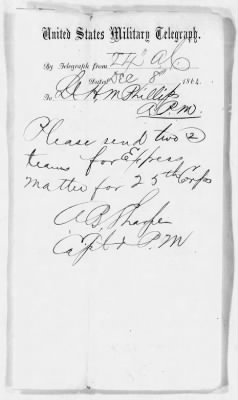 United States Military Telegraph.
By Telegraph from
Dated Dec 8th 1864.
To Lt H M Phillips
A.P.M.
Please send two 2
teams for Express
Matter for 25th Corps
A B Sharpe
Capt & P.M